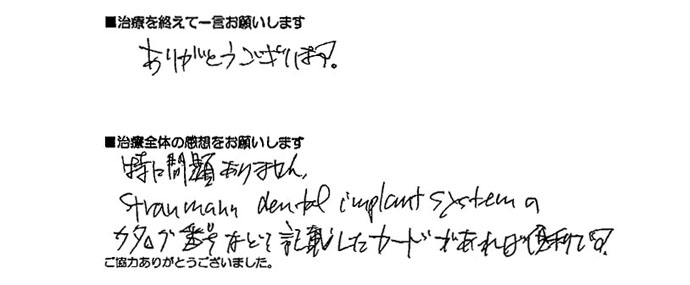 ■治療を終えて一言お願いします
ありがとうございます。
■治療全体の感想をお願いします
特に問題ありません。
Straumann dental implant systemの
カタログ番号などを記載したカードがあれば便利です。
ご協力ありがとうございました。